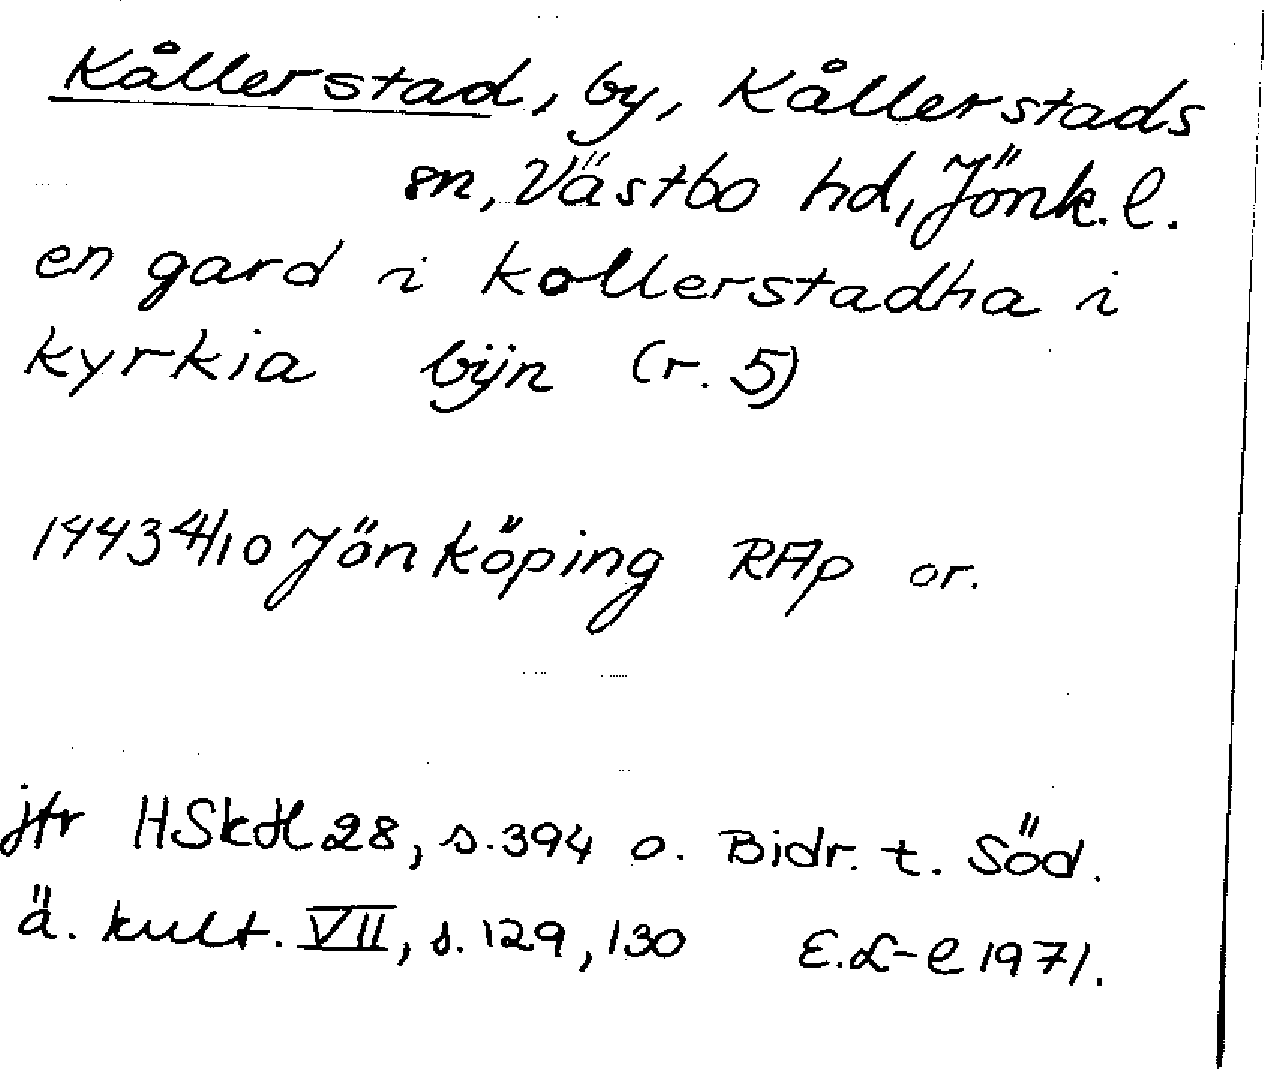 Kållerstad, by, Kållerstads
sn, Västbo hd, Jönk. l.
en gard i kollerstadha i
kyrkia bÿn (r. 5)
1443 4/10 Jönköping RAp or.
jfr HSkH 28, s. 394 o. Bidr. t. Söd.
ä. kult. VII, s. 129, 130 E.L-e 1971.